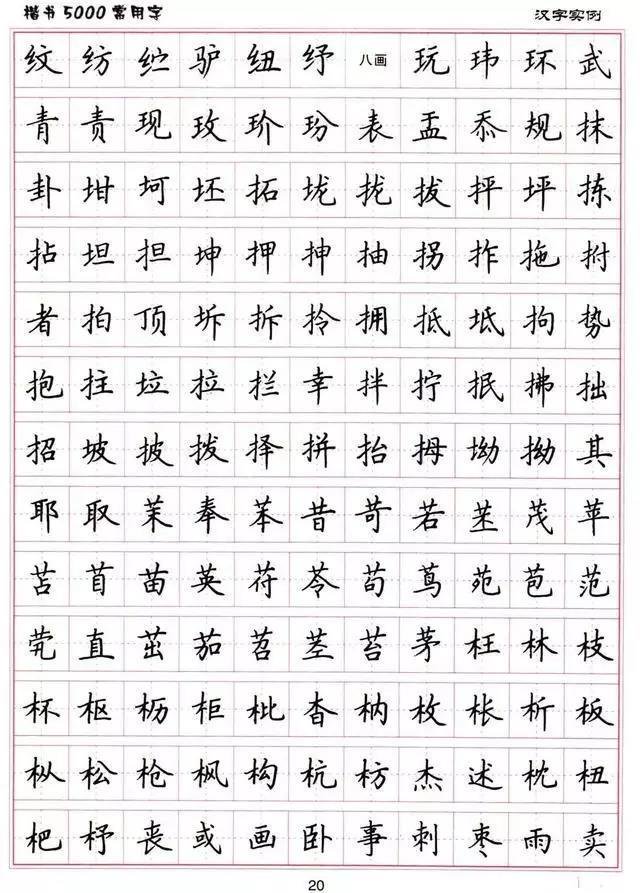 楷书5000常用字 汉字实例
纹 纺 纻 驴 纽 纾 八画 玩 玮 环 武
青 责 现 玫 玠 玢 表 盂 忝 规 抹
卦 坩 坷 坯 拓 垅 拢 拔 抨 坪 拣
拈 坦 担 坤 押 抻 抽 拐 拃 拖 拊
者 拍 顶 坼 拆 拎 拥 抵 坻 拘 势
抱 拄 垃 拉 拦 幸 拌 拧 抿 拂 拙
招 坡 披 拨 择 拼 抬 拇 坳 拗 其
耶 取 茉 奉 苯 昔 苛 若 苤 茂 苹
苫 苜 苗 英 苻 苓 苟 茑 苑 苞 范
茕 直 茁 茄 苕 茎 苔 茅 枉 林 枝
杯 枢 枥 柜 枇 杳 枘 枚 枨 析 板
枞 松 枪 枫 构 杭 枋 杰 述 枕 杻
杷 杼 丧 或 画 卧 事 刺 枣 雨 卖
20